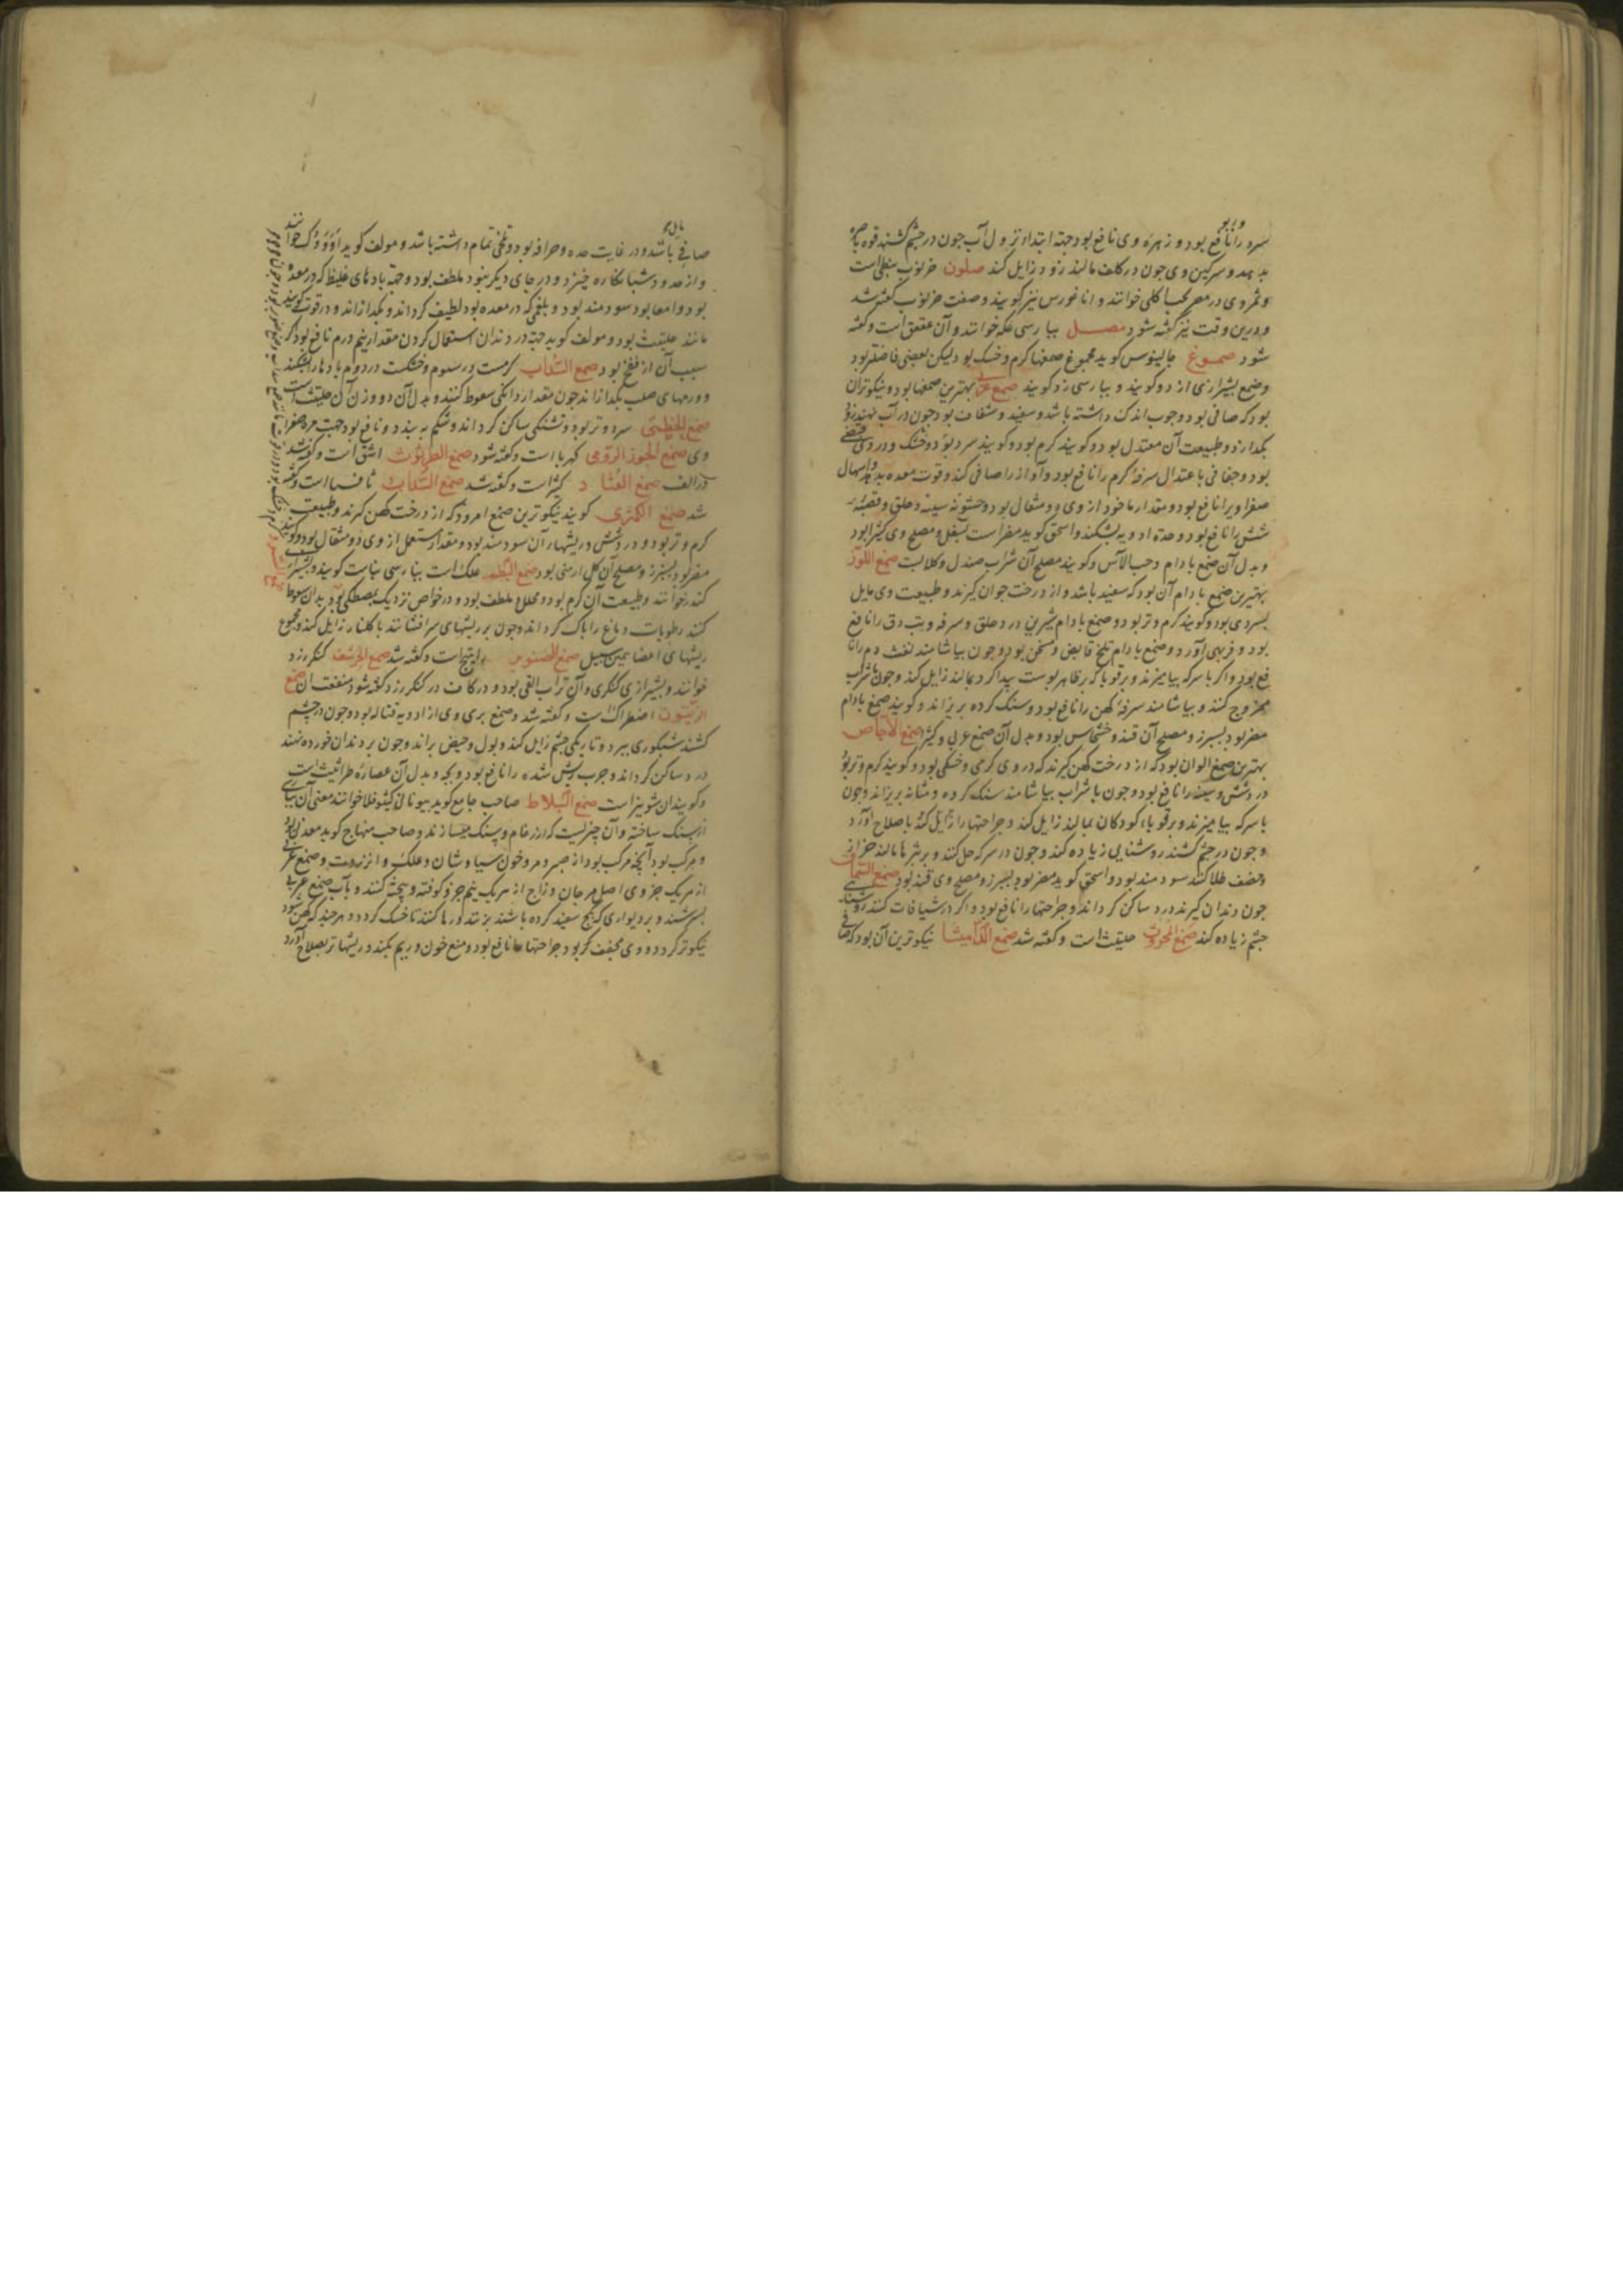 سرد را نافع بود و زهره وی نافع بود جهة ابتدا نزول آب چون در چشم کشند قوه باصره
بدهد و سرکین وی چون در کلف مالند زود زایل کند صلون خرنوب نبطی است
و ثمر وی در مصر بحب الکلی خوانند و اناغورس نیز کویند و صفت خرنوب کفته شد
و درین وقت نیز کفته شود صمصل بپارسی عکه خوانند و آن عقعق است و کفته
شود صموغ جالینوس کوید مجموع صمغها کرم و خشک بود و لیکن بعضی فاضلتر بود
و صمغ بشیرازی ازدو کویند و بپارسی زد کویند صمغ عربی بهترین صمغها بود و نیکوترین آن
بود که صافی بود و چوب اندک داشته باشد و سفید و شفاف بود چون در آب نهند زود
بکدازد و طبیعت آن معتدل بود و کویند کرم بود و کویند سرد بود و خشک و در وی قبضی
بود و جفافی باعتدال سرفه کرم را نافع بود و آواز را صافی کند و قوت معده بدهد و اسهال
صفراویرا نافع بود و مقدار ماخوذ از وی دو مثقال بود و خشونه سینه و حلق و قصبه
شش را نافع بود و حدة ادویه بشکند و اسحق کوید مضر است بسفل و مصلح وی کثیرا بود
و بدل آن صمغ بادام و حب الآس و کویند مصلح آن شراب صندل و کلابست صمغ اللوز
بهترین صمغ بادام آن بود که سفید باشد و از درخت جوان کیرند و طبیعت وی مایل
بسردی بود و کویند کرم و تر بود و صمغ بادام شیرین درد حلق و سرفه و تب دق را نافع
بود و فربهی آورد و صمغ بادام تلخ قابض و مسخن بود و چون بیاشامند نفث دم را نا
فع بود و اکر با سرکه بیامیزند و بر قوبا که بر ظاهر پوست پیدا کردد بمالند زایل کند و چون با شراب
ممزوج کنند و بیاشامند سرفه کهن را نافع بود و سنک کرده بریزاند و کویند صمغ بادام
مضر بود بسپرز و مصلح آن قند و خشخاش بود و بدل آن صمغ عربی و کثیرا صمغ الاجاص
بهترین صمغ الوان بود که از درخت کهن کیرند که در وی کرمی و خشکی بود و کویند کرم و تر بود
درد شش و سینه را نافع بود و چون با شراب بیاشامند سنک کرده و مثانه بریزاند و چون
با سرکه بیامیزند و بر قوباء کودکان بمالند زایل کند و جراحتها را زایل کند باصلاح آورد
و چون در چشم کشند روشنایی زیاده کند و چون در سرکه حل کنند و بر بثرها مالند حزاز
و حصف طلا کنند سودمند بود و اسحق کوید مضر بود بسپرز و مصلح وی قند بود صمغ السماق
چون دندان کیرند درد ساکن کرداند و جراحتها را نافع بود و اکر در شیافات کنند روشنایی
چشم زیاده کند صمغ المحروث حلتیث است و کفته شد صمغ الکامیشا نیکوترین آن بود که صافی
صافی باشد و در غایت حده و حرافه بود و تلخی تمام داشته باشد و مولف کوید خوانند
و از حدود شبانکاره خیزد و در جای دیکر نبود ملطف بود و جهة بادهای غلیظ که در معده
بود و امعا بود سودمند بود و بلغمی که در معده بود لطیف کرداند و بکدازاند و در قوت کویند
مانند حلتیث بود و مولف کوید جهة درد دندان استعمال کردن مقدار نیم درم نافع بود اکر
سبب آن از نفخ بود صمغ السذاب کرمست در سیوم و خشکست در دوم بادها را بشکند
و ورمهای صلب بکدازاند چون مقدار دانکی سعوط کنند و بدل آن دو وزن آن حلتیث است
صمغ الخطمی سرد و تر بود و تشنکی ساکن کرداند و شکم ببندد و نافع بود جهت مره صفرا
وی صمغ الجوز الرومی کهربا است و کفته شود صمغ الطرثوث اشق است و کفته شد
در الف صمغ القتاد کثیرا است و کفته شد صمغ السذاب تافسیا است و کفته
شد صمغ الکمثری کویند نیکوترین صمغ امرود که از درخت کهن کیرند و طبیعت
کرم و تر بود و درد شش و ریشهاء آن سودمند بود و مقدار مستعمل از وی دو مثقال بود و کویند
مضر بود بسپرز و مصلح آن کل ارمنی بود صمغ البطم علک است بپارسی بناست کویند و بشیرازی
کندر خوانند و طبیعت آن کرم بود و محلل و ملطف بود و در خواص نزدیک بمصطکی بود بدان سعوط
کنند رطوبات دماغ را پاک کرداند و چون بر ریشهای سر افشانند با کلنار زایل کند و مجموع
ریشهای اعضا بهمین سبیل صمغ الصنوبر راتینج است و کفته شد صمغ الحرشف کنکرزد
خوانند و بشیرازی کنکری و آن تراب القی بود و در کاف در کنکرزد کفته شود منفعت آن صمغ
الزیتون اصطرک است و کفته شد و صمغ بری وی از ادویه قتاله بود و چون در چشم
کشند شبکوری ببرد و تاریکی چشم زایل کند و بول و حیض براند و چون بر دندان خورده نهند
درد ساکن کرداند و جرب ریش شده را نافع بود و بچه و بدل آن عصاره طراثیث است
و کویند آن شونیز است صمغ البلاط صاحب جامع کوید بیونانی لیثوقلا خوانند معنی آن بپارسی
از سنک ساخته و آن چیزیست که از رخام و سنک میسازند و صاحب منهاج کوید معدنی بود
و مرکب بود آنچه مرکب بود از صبر و مر و خون سیاوشان و علک و انزروت و صمغ عربی
از هر یک جزوی اصل مرجان و زاج از هر یک نیم جزو کوفته و بیخته کنند و بآب صمغ عربی
بسرشند و بر دیواری که بکج سفید کرده باشند بزنند و رها کنند تا خشک کردد و هر چند که کهن شود
نیکوتر کردد و وی مجفف بود جراحتها را نافع بود و منع خون و ریم بکند و ریشها تر بصلاح آورد